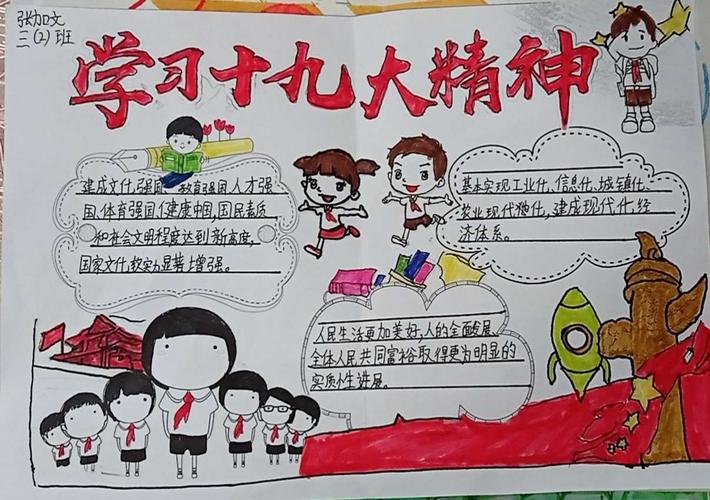 张加文
三(2)班
学习十九大精神
建成文化强国、教育强国、人才强
国、体育强国、健康中国,国民素质
和社会文明程度达到新高度,
国家文化软实力显著增强。
基本实现工业化、信息化、城镇化、
农业现代化,建成现代化经
济体系。
人民生活更加美好,人的全面发展、
全体人民共同富裕取得更为明显的
实质性进展。